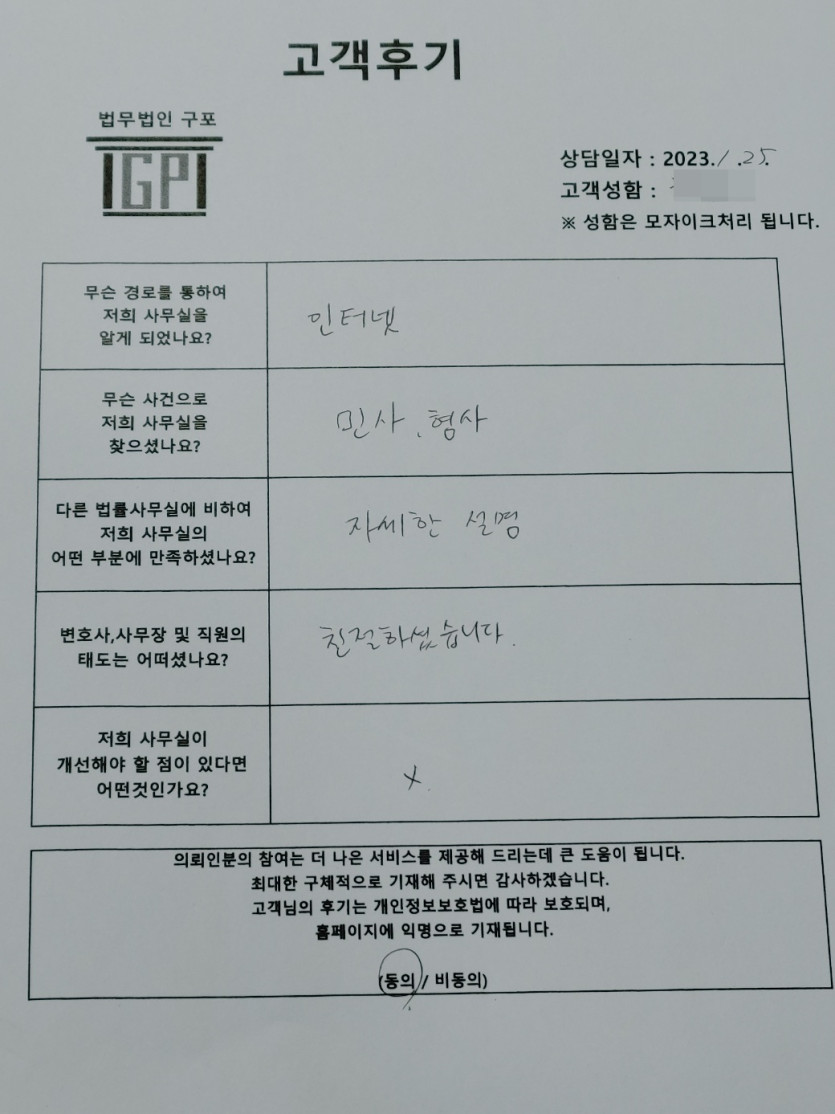 고객후기
법무법인 구포
IGPI
상담일자 : 2023. 1 .25.
고객성함 :
※ 성함은 모자이크처리 됩니다.
무슨 경로를 통하여
저희 사무실을
알게 되었나요?
인터넷
무슨 사건으로
저희 사무실을
찾으셨나요?
민사, 형사
다른 법률사무실에 비하여
저희 사무실의
어떤 부분에 만족하셨나요?
자세한 설명
변호사,사무장 및 직원의
태도는 어떠셨나요?
친절하셨습니다.
저희 사무실이
개선해야 할 점이 있다면
어떤것인가요?
X.
의뢰인분의 참여는 더 나은 서비스를 제공해 드리는데 큰 도움이 됩니다.
최대한 구체적으로 기재해 주시면 감사하겠습니다.
고객님의 후기는 개인정보보호법에 따라 보호되며,
홈페이지에 익명으로 기재됩니다.
(동의 / 비동의)